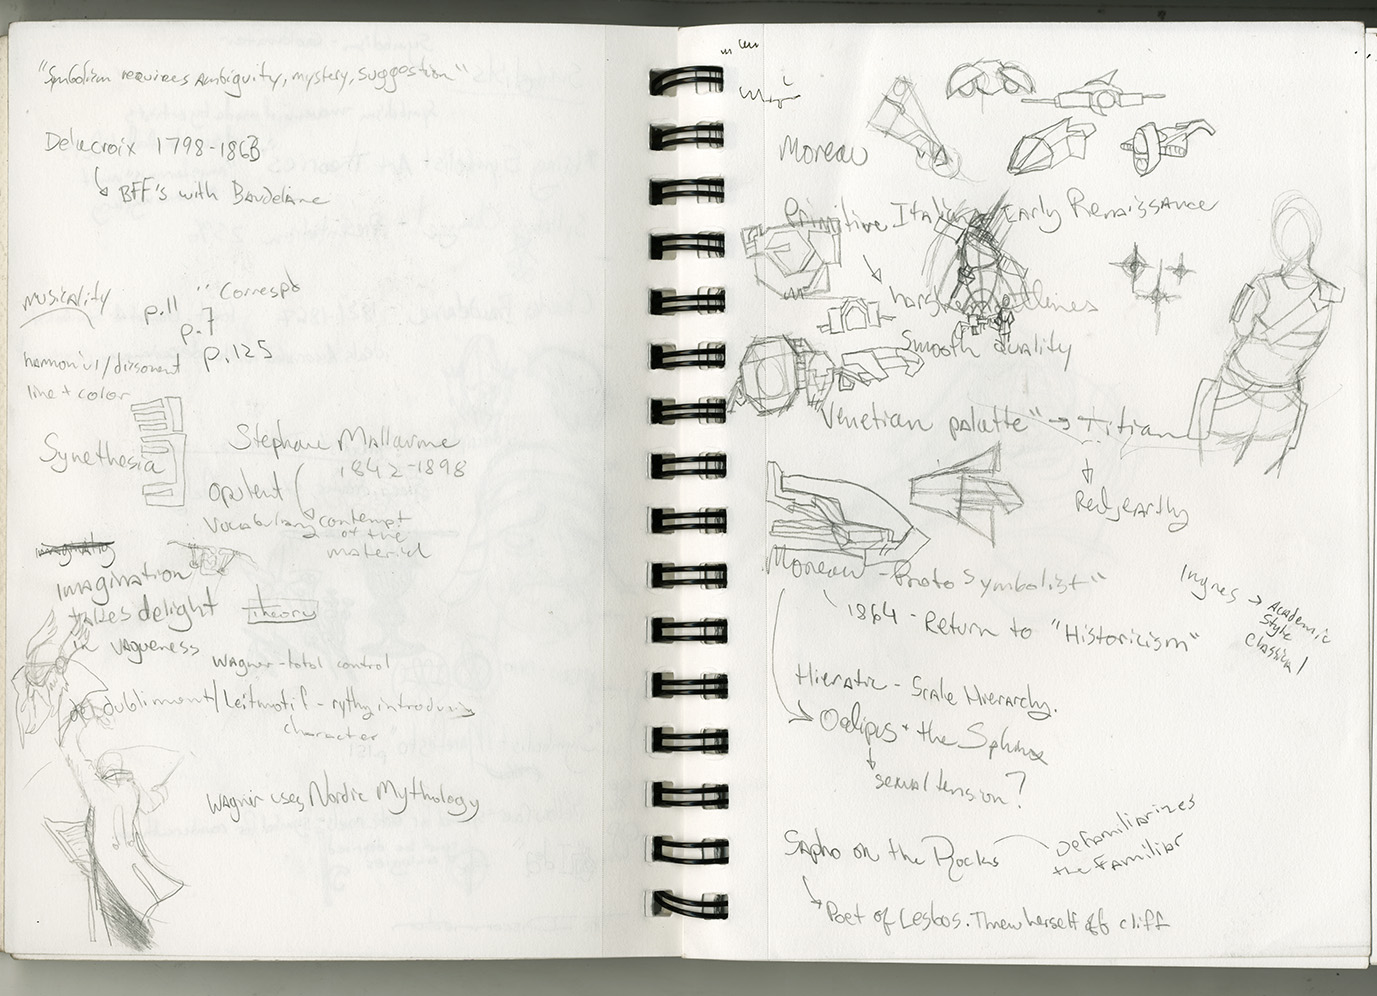 "Symbolism requires ambiguity, mystery, suggestion"
Delacroix 1798-1863
BFF's with Baudelaire
musicality
p.11 "Corresp
p.7
p.125
harmonius/dissonant
line + color
Synethesia
Stephane Mallarme
1842-1898
opulent
vocabulary
contempt
of the
material
imagination
takes delight
in vagueness
theory
Wagner - total control
Leitmotif - rythy introducing
character"
Wagner uses Nordic Mythology
Moreau
Primitive Italian Early Renaissance
harsh outlines
Smooth quality
"Venetian palatte" → Titian
Red, earthy
Moreau - Proto Symbolist"
1864 - Return to "Historicism"
Ingres → Academic
Style
Classical
Hieratic - Scale Hierarchy.
Oedipus + the Sphinx
sexual tension?
Sapho on the Rocks
Defamiliarizes
the Familiar
Poet of Lesbos. Threw herself off cliff